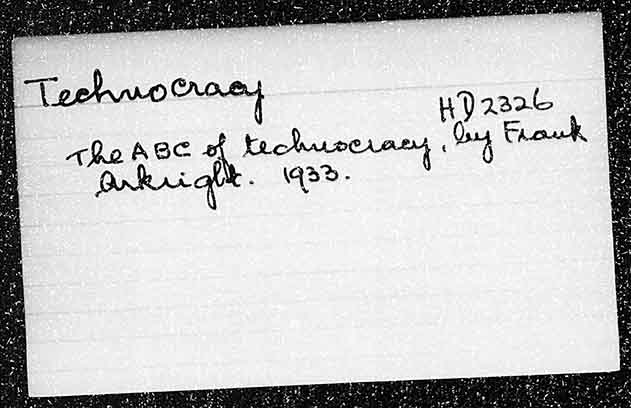 Technocracy
HD2326
The ABC of technocracy, by Frank
Arkright. 1933.